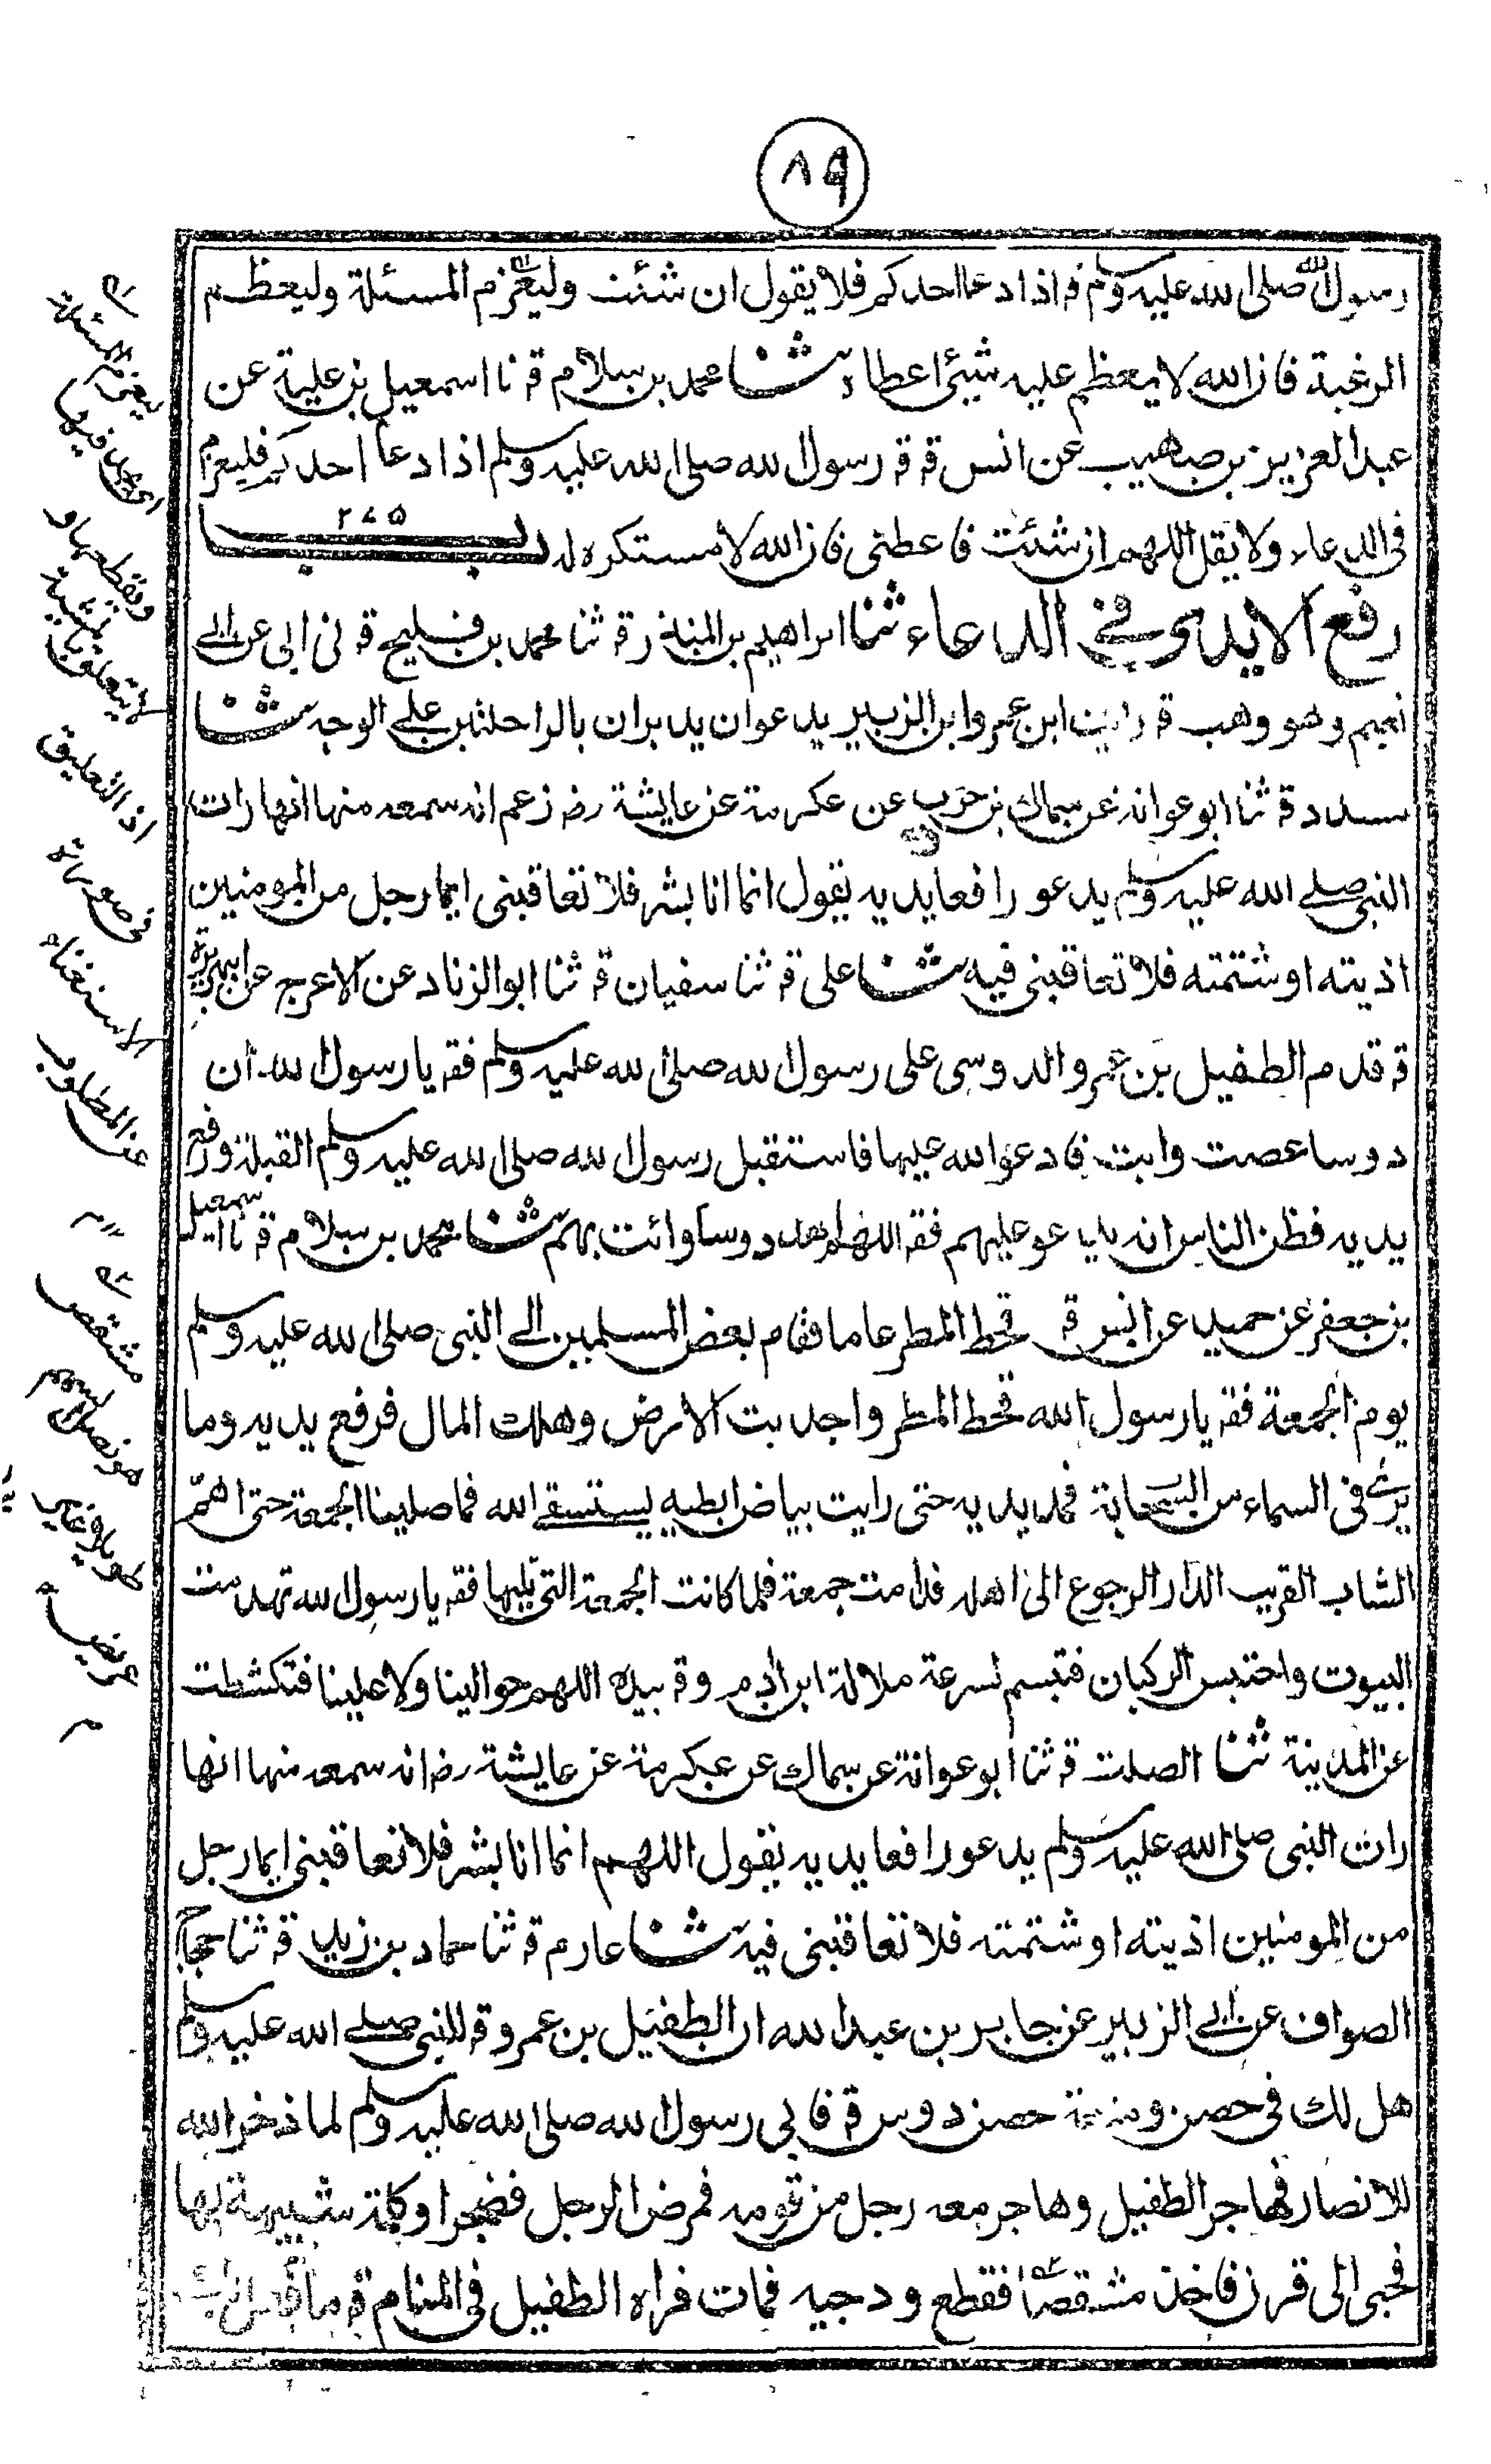 ٨٩
رسول الله صلى الله عليه وسلم قه اذا دعا احدكم فلا يقول ان شئت وليعزم المسئلة وليعظم
الرغبة فان الله لا يعظم عليه شيئ اعطاه ثنا محمد بن سلام قه نا اسمعيل بن علية عن
عبد العزيز بن صهيب عن انس قه قه رسول الله صلى الله عليه وسلم اذا دعا احدكم فليعزم
فى الدعاء ولا يقل اللهم ان شئت فاعطنى فان الله لا مستكره له باب ٢٧٥
رفع الايدى فى الدعاء ثنا ابراهيم بن المنذر قه ثنا محمد بن فليح قه نى ابى عن ابى
نعيم وهو وهب قه رايت ابن عمر وابن الزبير يدعوان يديران بالراحتين على الوجه ثنا
مسدد قه ثنا ابو عوانة عن سماك بن حرب عن عكرمة عن عايشة رضـ زعم انه سمعه منها انها رات
النبى صلى الله عليه وسلم يدعو رافعا يديه يقول انما انا بشر فلا تعاقبنى ايما رجل من المومنين
اذيته او شتمته فلا تعاقبنى فيه ثنا على قه ثنا سفيان قه ثنا ابو الزناد عن الاعرج عن ابى هريرة
قه قدم الطفيل بن عمرو الدوسى على رسول الله صلى الله عليه وسلم فقه يا رسول الله ان
دوسا عصت وابت فادع الله عليها فاستقبل رسول الله صلى الله عليه وسلم القبلة ورفع
يديه فظن الناس انه يدعو عليهم فقه اللهم اهد دوسا وائت بهم ثنا محمد بن سلام قه نا اسمعيل
بن جعفر عن حميد عن انس قه قحط المطر عاما فقام بعض المسلمين الى النبى صلى الله عليه وسلم
يوم الجمعة فقه يا رسول الله قحط المطر واجدبت الارض وهلك المال فرفع يديه وما
يرى فى السماء من السحابة فمد يديه حتى رايت بياض ابطيه يستسقى الله فما صلينا الجمعة حتى اهم
الشاب القريب الدار الرجوع الى اهله فدامت جمعة فلما كانت الجمعة التى تليها فقه يا رسول الله تهدمت
البيوت واحتبس الركبان فتبسم لسرعة ملالة ابن ادم وقه بيده اللهم حوالينا ولا علينا فتكشطت
عن المدينة ثنا الصلت قه ثنا ابو عوانة عن سماك عن عكرمة عن عايشة رضـ انه سمعه منها انها
رات النبى صلى الله عليه وسلم يدعو رافعا يديه يقول اللهم انما انا بشر فلا تعاقبنى ايما رجل
من المومنين اذيته او شتمته فلا تعاقبنى فيه ثنا عارم قه ثنا حماد بن زيد قه ثنا حجاج
الصواف عن ابى الزبير عن جابر بن عبد الله ان الطفيل بن عمرو قه للنبى صلى الله عليه وسلم
هل لك فى حصن ومنعة حصن دوس قه فابى رسول الله صلى الله عليه وسلم لما ذخر الله
للانصار فهاجر الطفيل وهاجر معه رجل من قومه فمرض الرجل فضجر او كلمة شبيهة بها
فحبى الى قرن فاخذ مشقصا فقطع ودجيه فمات فراه الطفيل فى المنام قه ما فعل بك
ليعزم المسئلة
اى يجد فيها
ويقطعها و
لا يتعلق بمشية
اذ التعليق
فى صورة
الاستغناء
عن المطلوب
مشقص
هو نصل السهم
طويلا غير
عريض